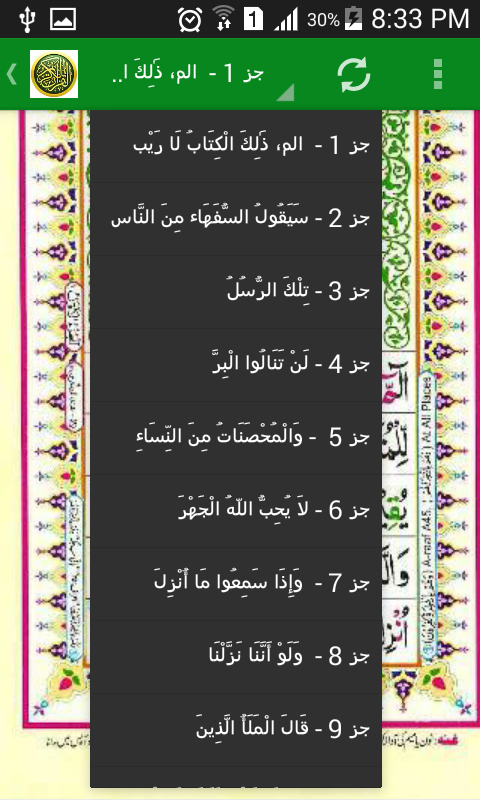 30% 8:33 PM
1
جز 1 - الم، ذَلِكَ ا..
جز 1 - الم، ذَلِكَ الْكِتَابُ لَا رَيْب
جز 2 - سَيَقُولُ السُّفَهَاء مِنَ النَّاس
جز 3 - تِلْكَ الرُّسُلُ
جز 4 - لَنْ تَنَالُوا الْبِرَّ
جز 5 - وَالْمُحْصَنَاتُ مِنَ النِّسَاءِ
جز 6 - لاَ يُحِبُّ اللّهُ الْجَهْرَ
جز 7 - وَإِذَا سَمِعُوا مَا أُنْزِلَ
جز 8 - وَلَوْ أَنَّنَا نَزَّلْنَا
جز 9 - قَالَ الْمَلَأُ الَّذِينَ
A-raaf A45.
At All Places